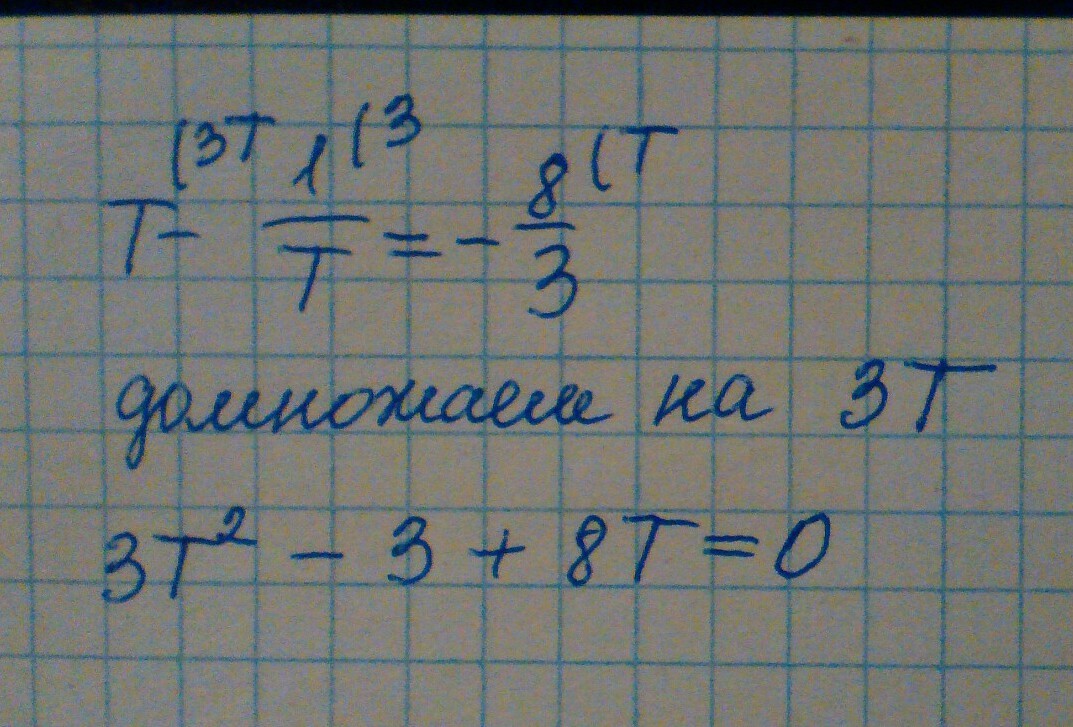 T(3T - 1(3/T = -8(T/3
домножаем на 3T
3T² - 3 + 8T = 0